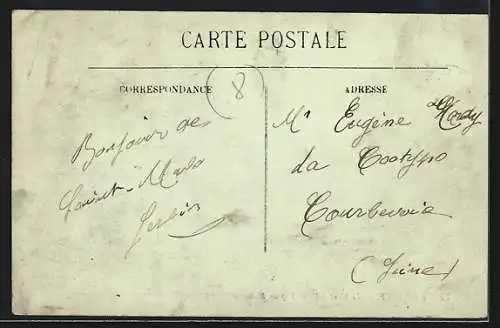 CARTE POSTALE
CORRESPONDANCE
8
ADRESSE
Bonjour de
Saint-Malo
Mr Eugène Hardy
La Cootypo
Courbevoie
(Seine)